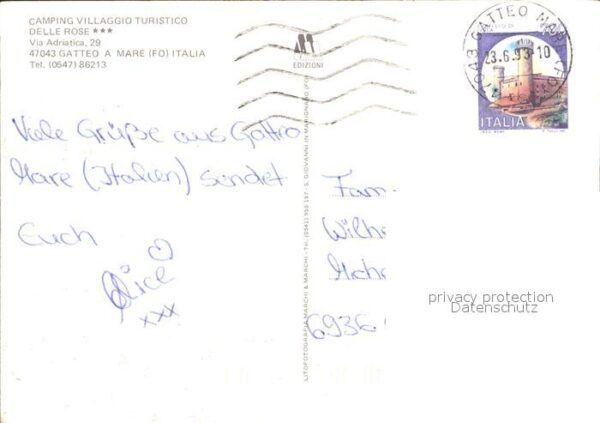 CAMPING VILLAGGIO TURISTICO
DELLE ROSE ★★★
Via Adriatica, 29
47043 GATTEO A MARE (FO) ITALIA
Tel. (0547) 86213
EDIZIONI
GATTEO MAR
23.6.93 10
ITALIA
Viele Grüße aus Gatteo
Mare (Italien) sendet
Euch
Alice
xxx
LITOFOTOGRAFIA MARCHI & MARCHI - TH. (0541) 955 197 - S. GIOVANNI IN MARIGNANO (FO)
Fam.
Wilh
6936
privacy protection
Datenschutz